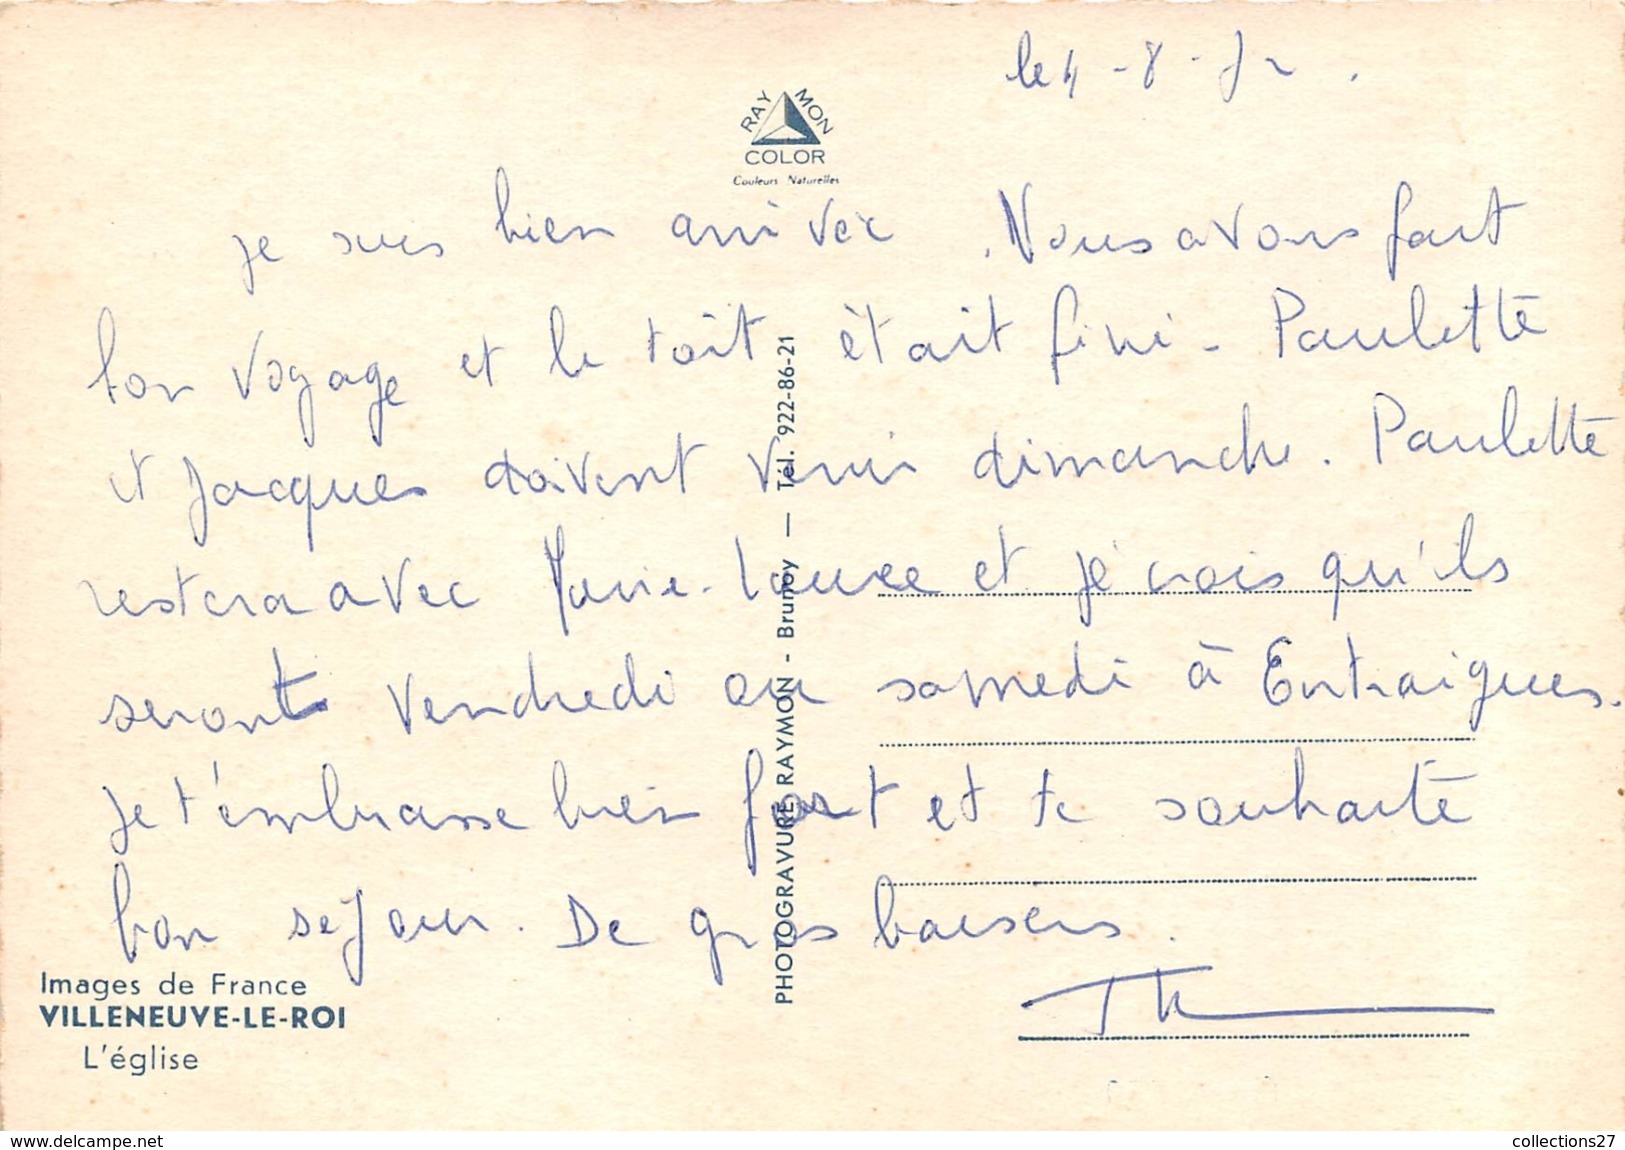 le 4-8-72.
RAYMON
COLOR
Couleurs Naturelles
je suis bien arrivée. Nous avons fait
bon voyage et le toît était fini - Paulette
et Jacques doivent venir dimanche. Paulette
restera avec Marie-Laure et je crois qu'ils
seront vendredi ou samedi à Entraigues.
je t'embrasse bien fort et te souhaite
bon sejour. De gros baisers.
PHOTOGRAVURE RAYMON - Brunoy — Tél. 922-86-21
Images de France
VILLENEUVE-LE-ROI
L'église
www.delcampe.net
collections27